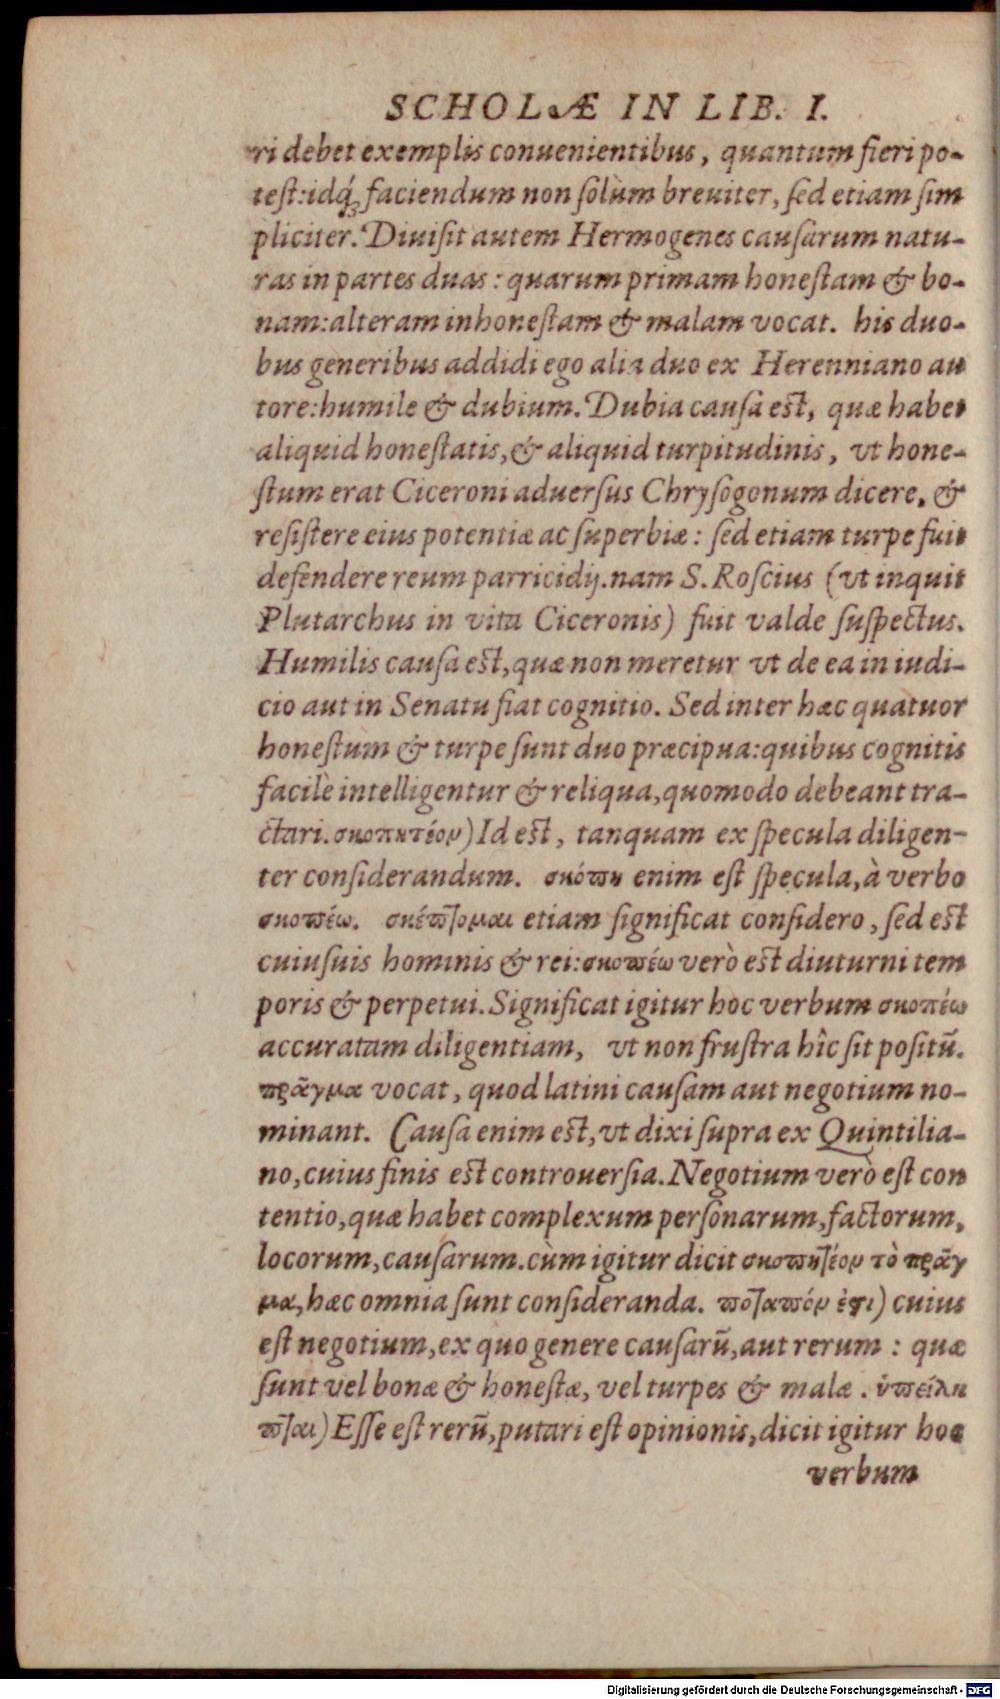 SCHOLÆ IN LIB. I.
ri debet exemplis conuenientibus, quantum fieri po-
test: idq́ꝫ faciendum non solùm breuiter, sed etiam sim
pliciter. Diuisit autem Hermogenes causarum natu-
ras in partes duas: quarum primam honestam & bo-
nam: alteram inhonestam & malam vocat. his duo-
bus generibus addidi ego alia duo ex Herenniano au
tore: humile & dubium. Dubia causa est, quæ habet
aliquid honestatis, & aliquid turpitudinis, vt hone-
stum erat Ciceroni aduersus Chrysogonum dicere, &
resistere eius potentiæ ac superbiæ: sed etiam turpe fuit
defendere reum parricidij. nam S. Roscius (vt inquit
Plutarchus in vita Ciceronis) fuit valde suspectus.
Humilis causa est, quæ non meretur vt de ea in iudi-
cio aut in Senatu fiat cognitio. Sed inter hæc quatuor
honestum & turpe sunt duo præcipua: quibus cognitis
facilè intelligentur & reliqua, quomodo debeant tra-
ctari. σκοπητέον) Id est, tanquam ex specula diligen-
ter considerandum. σκόπη enim est specula, à verbo
σκοπέω. σκέπτομαι etiam significat considero, sed est
cuiusuis hominis & rei: σκοπέω verò est diuturni tem
poris & perpetui. Significat igitur hoc verbum σκοπέω
accuratam diligentiam, vt non frustra hîc sit positū.
πρᾶγμα vocat, quod latini causam aut negotium no-
minant. Causa enim est, vt dixi supra ex Quintilia-
no, cuius finis est controuersia. Negotium verò est con
tentio, quæ habet complexum personarum, factorum,
locorum, causarum. cùm igitur dicit σκοπητέον τὸ πρᾶγ
μα, hæc omnia sunt consideranda. ποταπόν ἐστι) cuius
est negotium, ex quo genere causarū, aut rerum: quæ
sunt vel bonæ & honestæ, vel turpes & malæ. ὑπείλη
πται) Esse est rerū, putari est opinionis, dicit igitur hoc
verbum
Digitalisierung gefördert durch die Deutsche Forschungsgemeinschaft - DFG